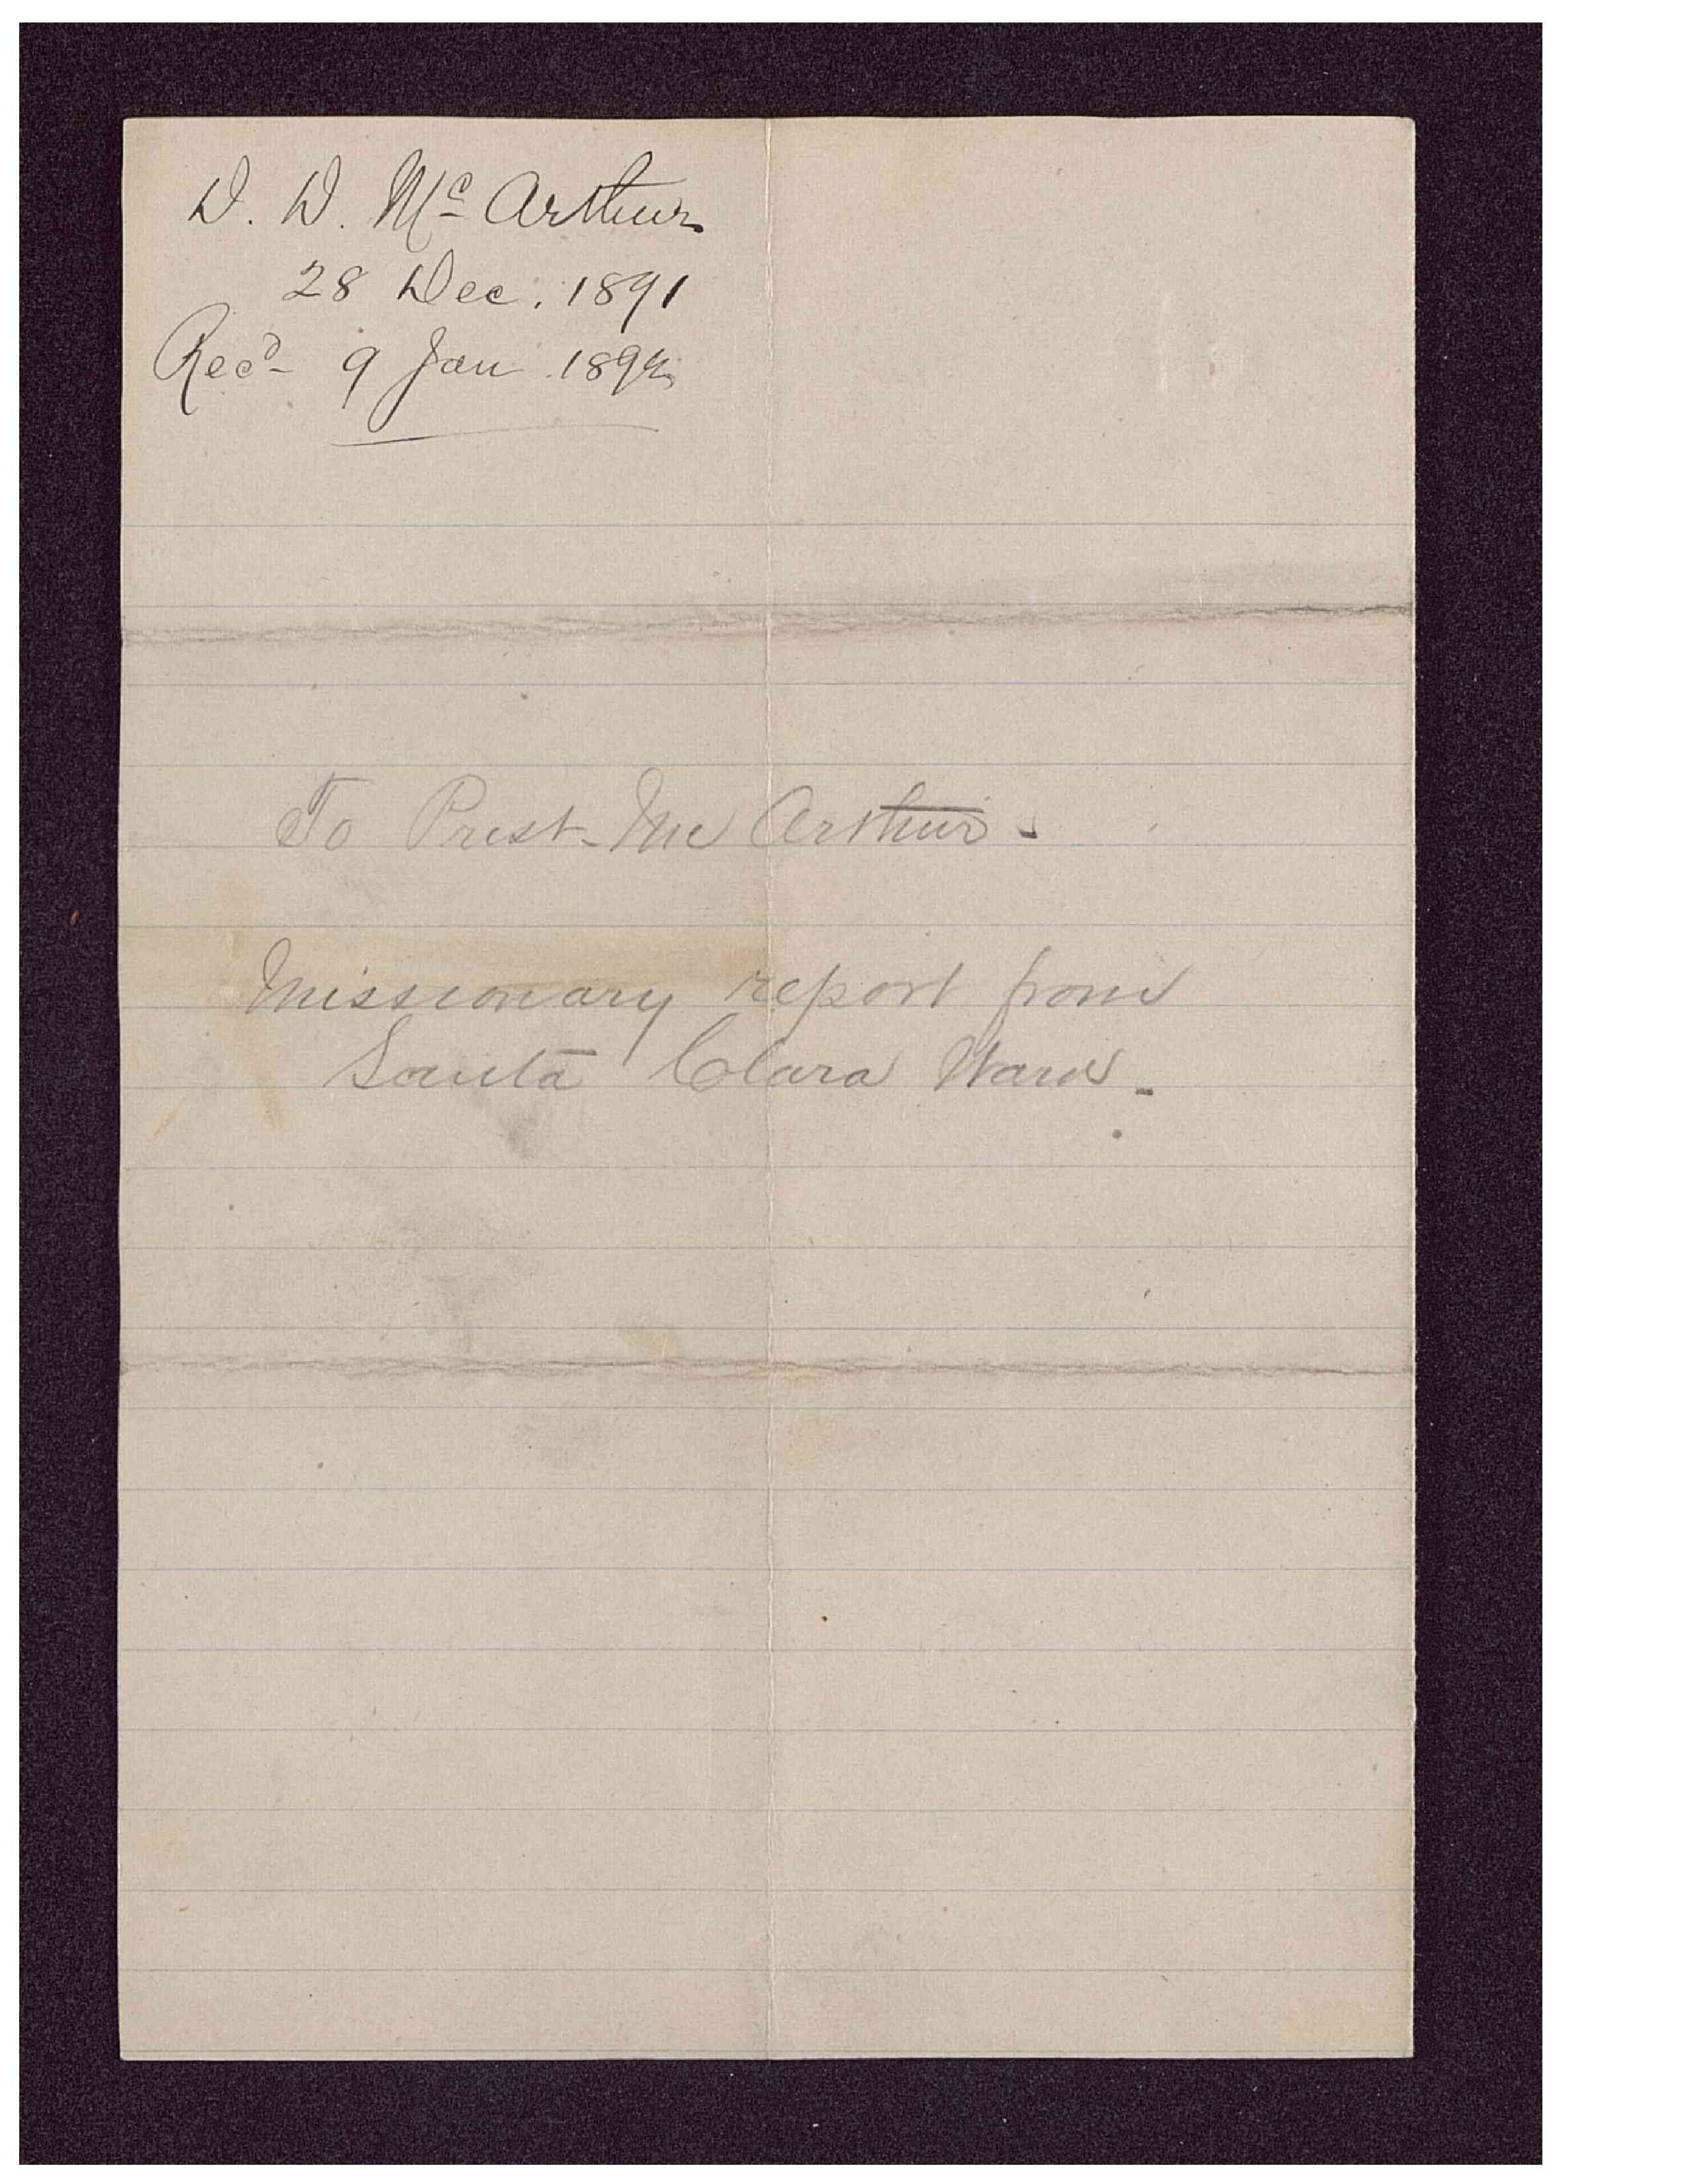 D. D. Mc Arthur
28 Dec. 1891
Recd 9 Jan 1892
To Prest. Mc Arthur.
Missionary report from
Santa Clara Ward.